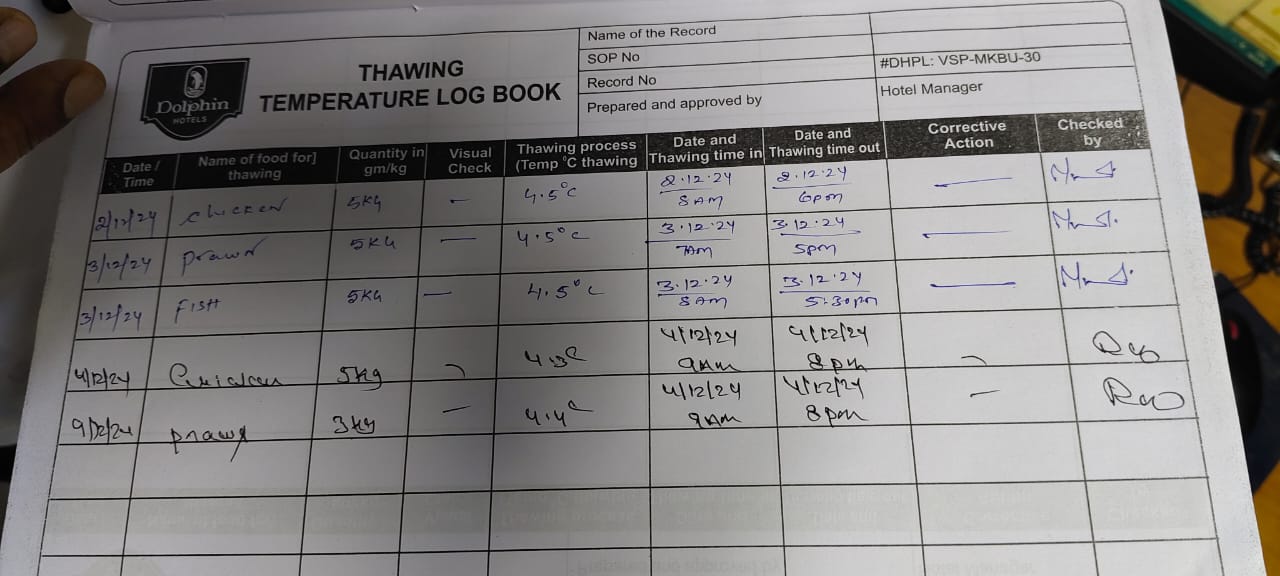 Dolphin
HOTELS
THAWING
TEMPERATURE LOG BOOK
Name of the Record
SOP No
Record No #DHPL: VSP-MKBU-30
Prepared and approved by Hotel Manager
Date / Time Name of food for] thawing Quantity in gm/kg Visual Check Thawing process (Temp °C thawing Date and Thawing time in Date and Thawing time out Corrective Action Checked by
2/12/24 chicken 5KG - 4.5°C 2.12.24 8AM 2.12.24 6pm —
3/12/24 prawn 5KG — 4.5°C 3.12.24 7AM 3.12.24 5pm —
3/12/24 FISH 5KG — 4.5°C 3.12.24 8AM 3.12.24 5.30pm —
4/12/24 5kg 4.3C 4/12/24 9AM 4/12/24 8pm
9/12/24 prawn 3kg — 4.4C 4/12/24 9AM 4/12/24 8pm -